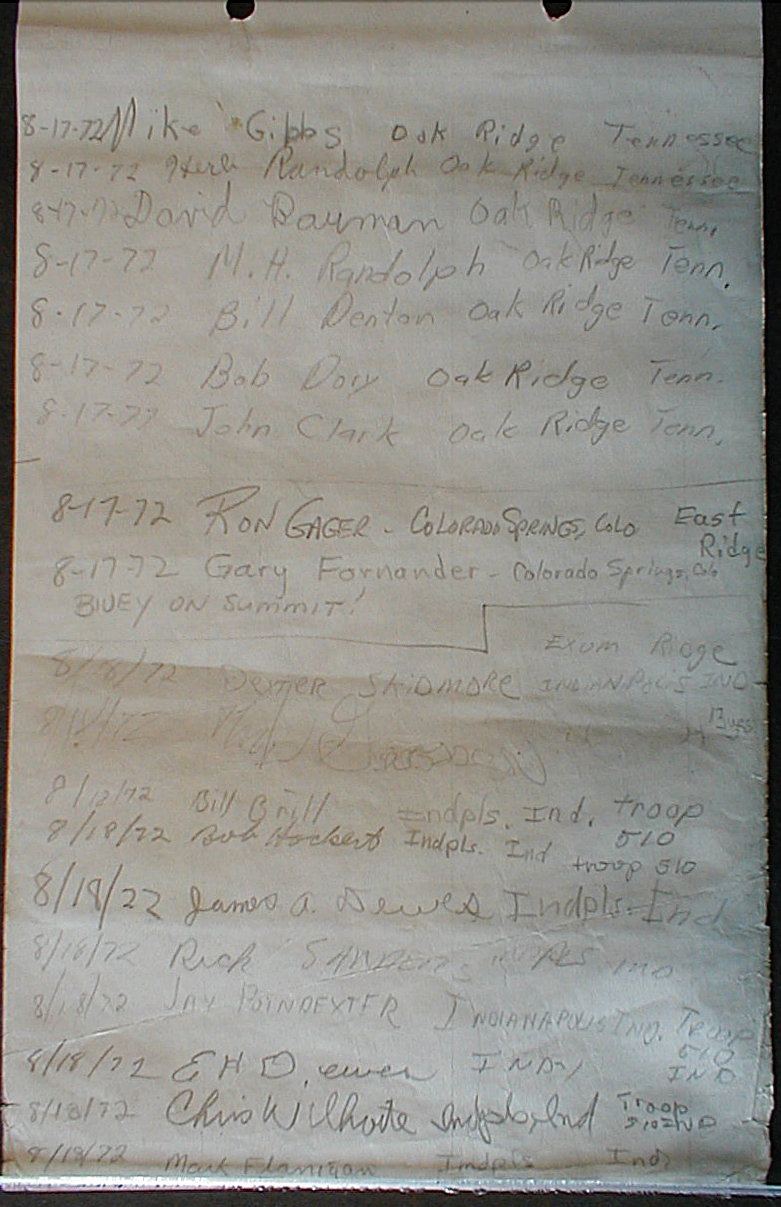 8-17-72 Mike Gibbs Oak Ridge Tennessee
8-17-72 Herb Randolph Oak Ridge Tennessee
8-17-72 David Bauman Oak Ridge Tenn.
8-17-72 M. H. Randolph Oak Ridge Tenn.
8-17-72 Bill Denton Oak Ridge Tenn.
8-17-72 Bob Dory Oak Ridge Tenn.
8-17-72 John Clark Oak Ridge Tenn.
8-17-72 RON GAGER - COLORADO SPRINGS, COLO East
Ridge
8-17-72 Gary Fornander - Colorado Springs, Colo
BIVEY ON SUMMIT!
EXUM Ridge
8/18/72 DEXTER SKIDMORE INDIANPOLIS IND-
8/18/72
8/18/72 Bill Brill Indpls. Ind. troop
510
8/18/72 Bob Hockert Indpls. Ind
troop 510
8/18/72 James A. Indpls. Ind
8/18/72 Rick SANDERS IND
8/18/72 JAY POINDEXTER INDIANAPOLIS IND. Troop
510
8/18/72 E H D IND
8/18/72 Chris Wilhoite Indpls, Ind Troop
510 IND
8/18/72 Mark Flanigan Indpls Ind